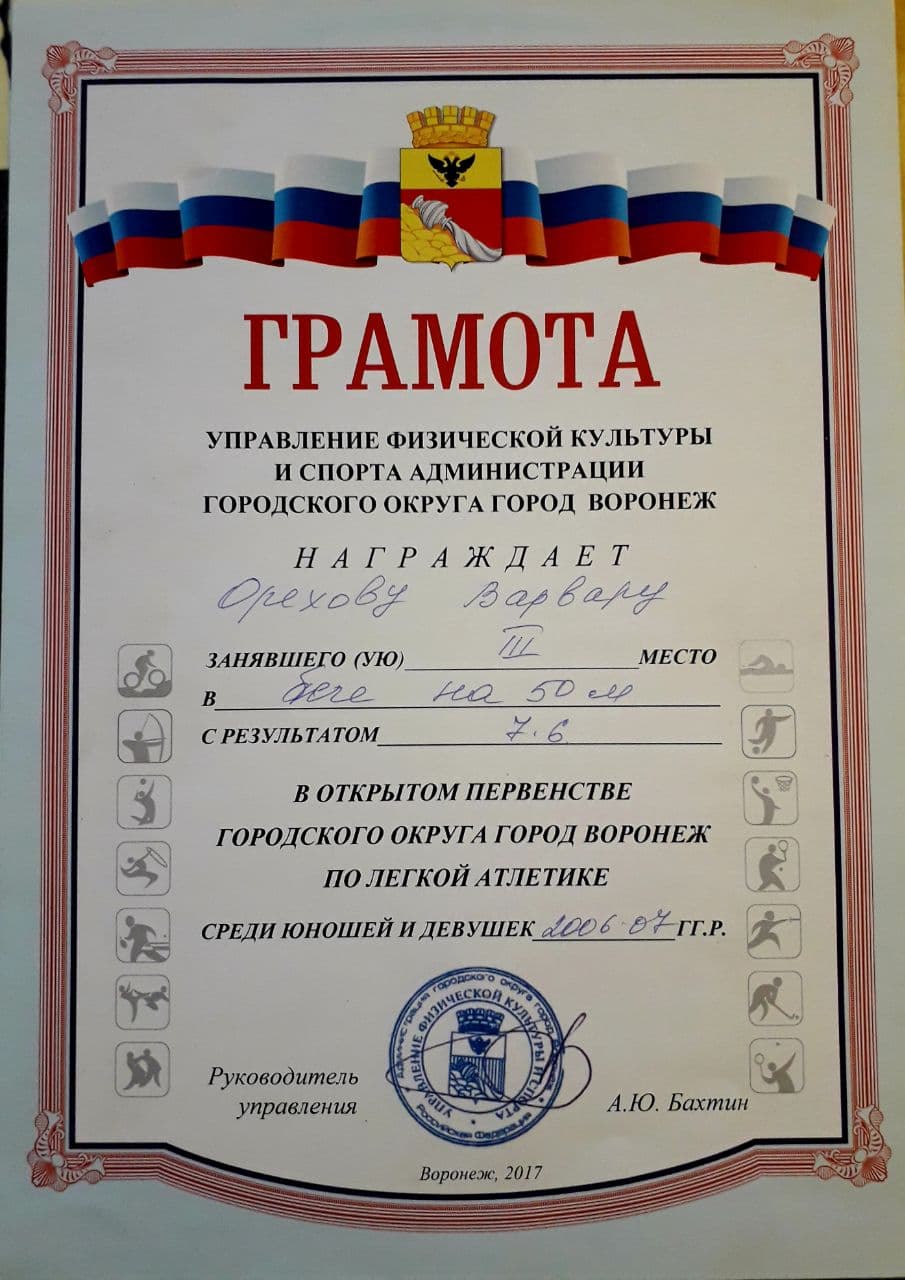 ГРАМОТА
УПРАВЛЕНИЕ ФИЗИЧЕСКОЙ КУЛЬТУРЫ
И СПОРТА АДМИНИСТРАЦИИ
ГОРОДСКОГО ОКРУГА ГОРОД ВОРОНЕЖ
НАГРАЖДАЕТ
Орехову Варвару
ЗАНЯВШЕГО (УЮ) III МЕСТО
В беге на 50 м
С РЕЗУЛЬТАТОМ 7.6
В ОТКРЫТОМ ПЕРВЕНСТВЕ
ГОРОДСКОГО ОКРУГА ГОРОД ВОРОНЕЖ
ПО ЛЕГКОЙ АТЛЕТИКЕ
СРЕДИ ЮНОШЕЙ И ДЕВУШЕК 2006-07 ГГ.Р.
Администрация городского округа город
УПРАВЛЕНИЕ ФИЗИЧЕСКОЙ КУЛЬТУРЫ И СПОРТА
Российская Федерация
Руководитель
управления
А.Ю. Бахтин
Воронеж, 2017